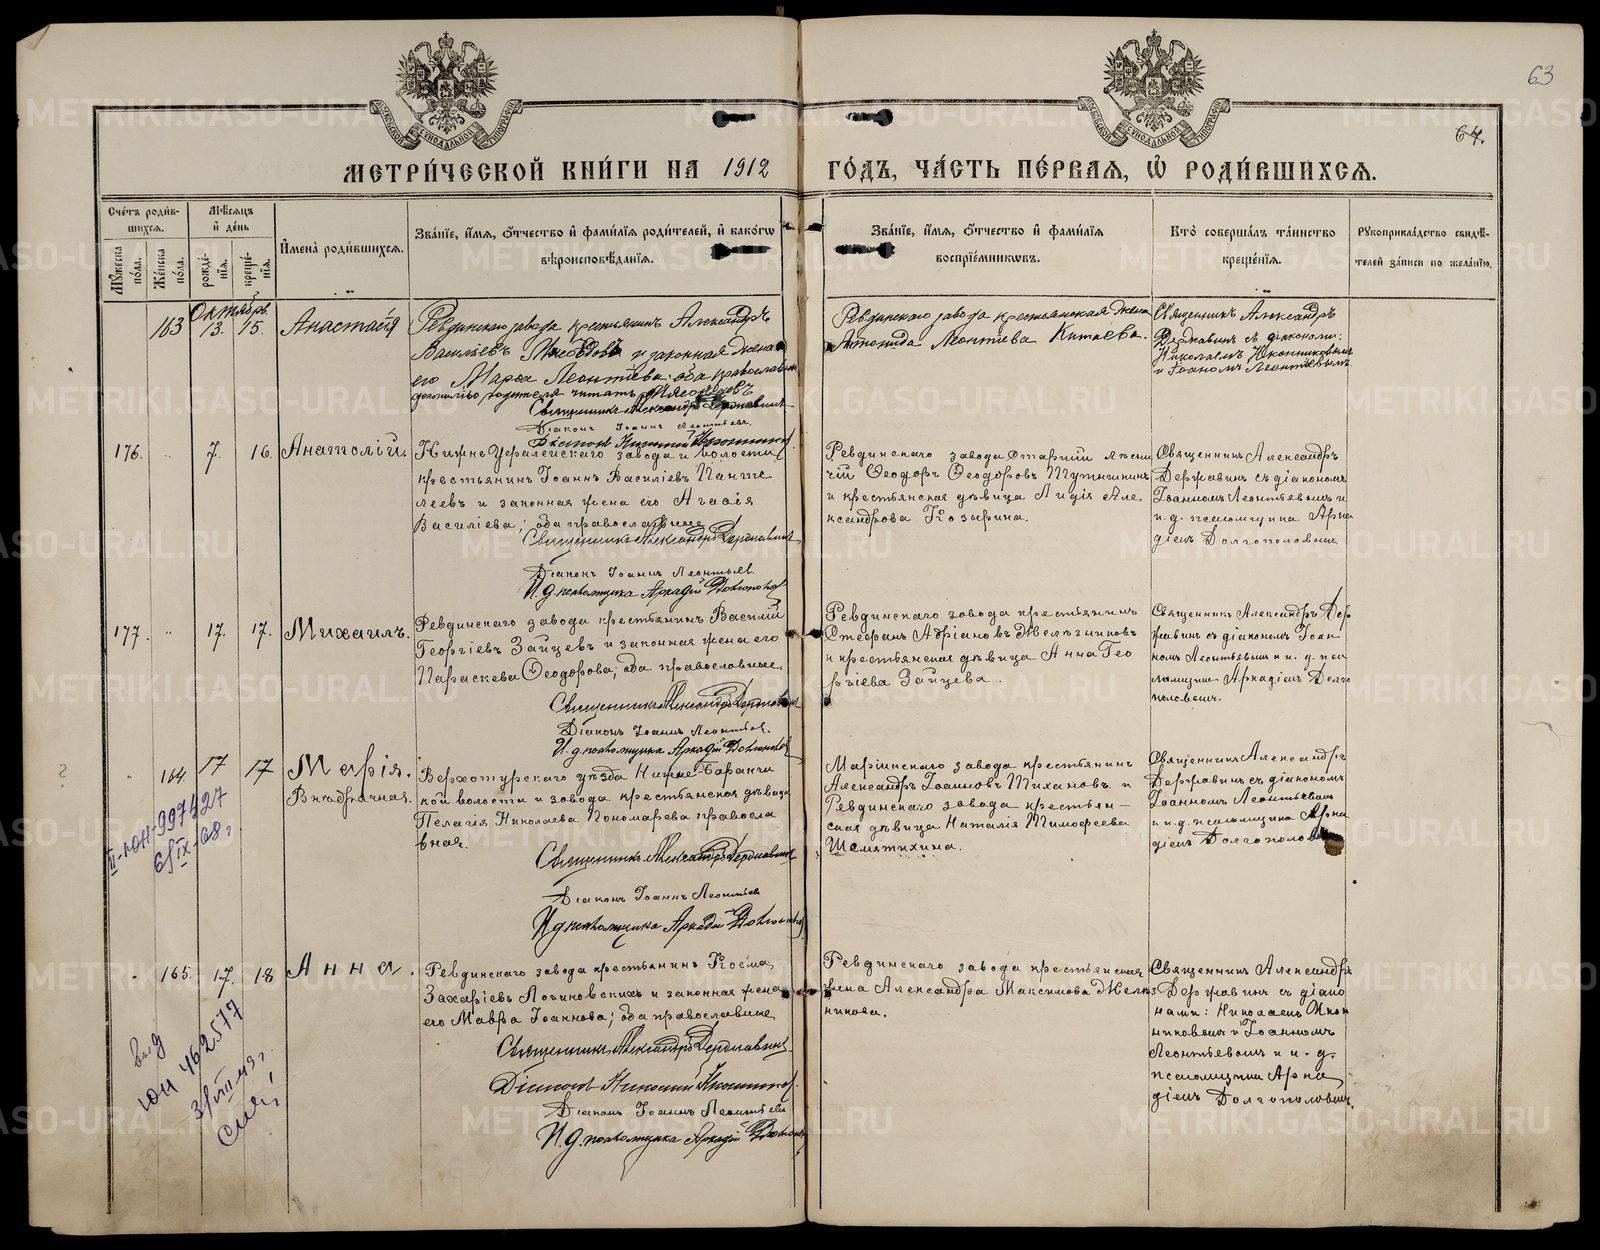 63
64.
МЕТРИЧЕСКОЙ КНИГИ НА 1912 ГОДЪ, ЧАСТЬ ПЕРВАЯ, Ѡ РОДИВШИХСЯ.
Счетъ родив-
шихся.
Мужеска
пола.
Женска
пола.
Мѣсяцъ
и день
рожде-
нія.
креще-
нія.
Имена родившихся.
Званіе, имя, отчество и фамилія родителей, и какогѡ
вѣроисповѣданія.
Званіе, имя, отчество и фамилія
воспріемниковъ.
Кто совершалъ таинство
крещенія.
Рукоприкладство свидѣ-
телей записи по желанію.
Октябрь.
163 13. 15. Анастасія
Ревдинскаго завода крестьянинъ Александръ
Васильевъ и законная жена
его Марѳа Леонтіева, оба православные
читать
Священникъ Александръ Державинъ
Діаконъ Іоаннъ Леонтьевъ.
Діаконъ Николай Иконниковъ
Ревдинскаго завода крестьянская жена
Антонида Леонтіева Китаева.
Священникъ Александръ
Державинъ съ діаконами:
Николаемъ Иконниковымъ
и Іоанномъ Леонтіевымъ
176. 7. 16. Анатолій.
Нижне Уфалейскаго завода и волости
крестьянинъ Іоаннъ Василіевъ Панте
леевъ и законная жена его Агаѳія
Василіева; оба православные
Священникъ Александръ Державинъ
Діаконъ Іоаннъ Леонтьев.
И. д. псаломщика Аркадій Долгополов
Ревдинскаго завода старшій лѣсни
чій Ѳеодоръ Ѳеодоровъ
и крестьянская дѣвица Лидія Але
ксандрова Козырина.
Священникъ Александръ
Державинъ съ діакономъ
Іоанномъ Леонтьевымъ и
и. д. псаломщика Арка
діемъ Долгополовым.
177. 17. 17. Михаилъ.
Ревдинскаго завода крестьянинъ Василій
Георгіевъ Зайцевъ и законная жена его
Параскева Ѳеодорова; оба православные
Священникъ Александръ Державинъ
Діаконъ Іоаннъ Леонтьев.
И. д. псаломщика Аркадій Долгополов
Ревдинскаго завода крестьянинъ
Стефанъ Адріановъ Желѣзниковъ
и крестьянская дѣвица Анна Гео
ргіева Зайцева.
Священникъ Александръ Дер
жавинъ съ діакономъ Іоан
номъ Леонтьевымъ и и. д. пса
ломщика Аркадіемъ Долго
половымъ.
164. 17 17 Марія.
Внѣбрачная.
Верхотурскаго уѣзда Нижне-Баранчи
ской волости и завода крестьянская дѣвица
Пелагія Николаева Пономарева правосла
вная.
Священникъ Александръ Державинъ
Діаконъ Іоаннъ Леонтьев
И. д. псаломщика Аркадій Долгополов
Маріинскаго завода крестьянинъ
Александръ Іоанновъ Тихановъ и
Ревдинскаго завода крестьян-
ская дѣвица Наталія Тимоѳеева
Шемятихина.
Священникъ Александръ
Державинъ съ діакономъ
Іоанномъ Леонтьевымъ
и и. д. псаломщика Арка
діемъ Долгополов
II-ЮН 997427
6/IX-68 г
165. 17. 18 Анна.
Ревдинскаго завода крестьянинъ Косма
Захаріевъ Логиновскихъ и законная жена
его Мавра Іоаннова; оба православные
Священникъ Александръ Державинъ
Діаконъ Николай Иконников.
Діаконъ Іоаннъ Леонтьев
И. д. псаломщика Аркадій Долгополов
Ревдинскаго завода крестьянская
жена Александра Максимова Желѣз
никова.
Священникъ Александръ
Державинъ съ діако
нами: Николаемъ Икон
никовымъ и Іоанномъ
Леонтьевымъ и и. д.
псаломщика Арка
діемъ Долгополовым.
выд
ЮН 462577
3/VII 49 г.